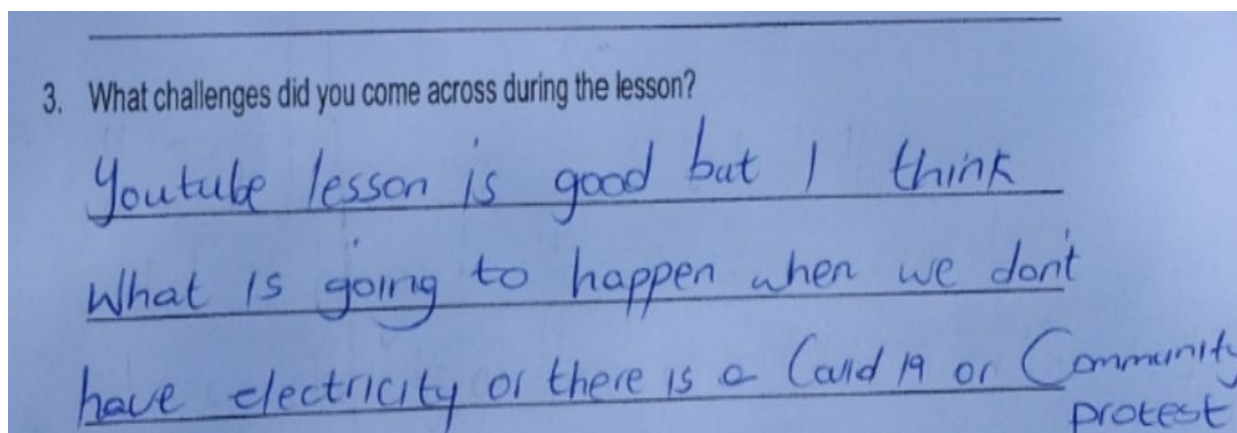 3. What challenges did you come across during the lesson?
Youtube lesson is good but I think
What is going to happen when we don't
have electricity or there is a Covid 19 or Community
protest